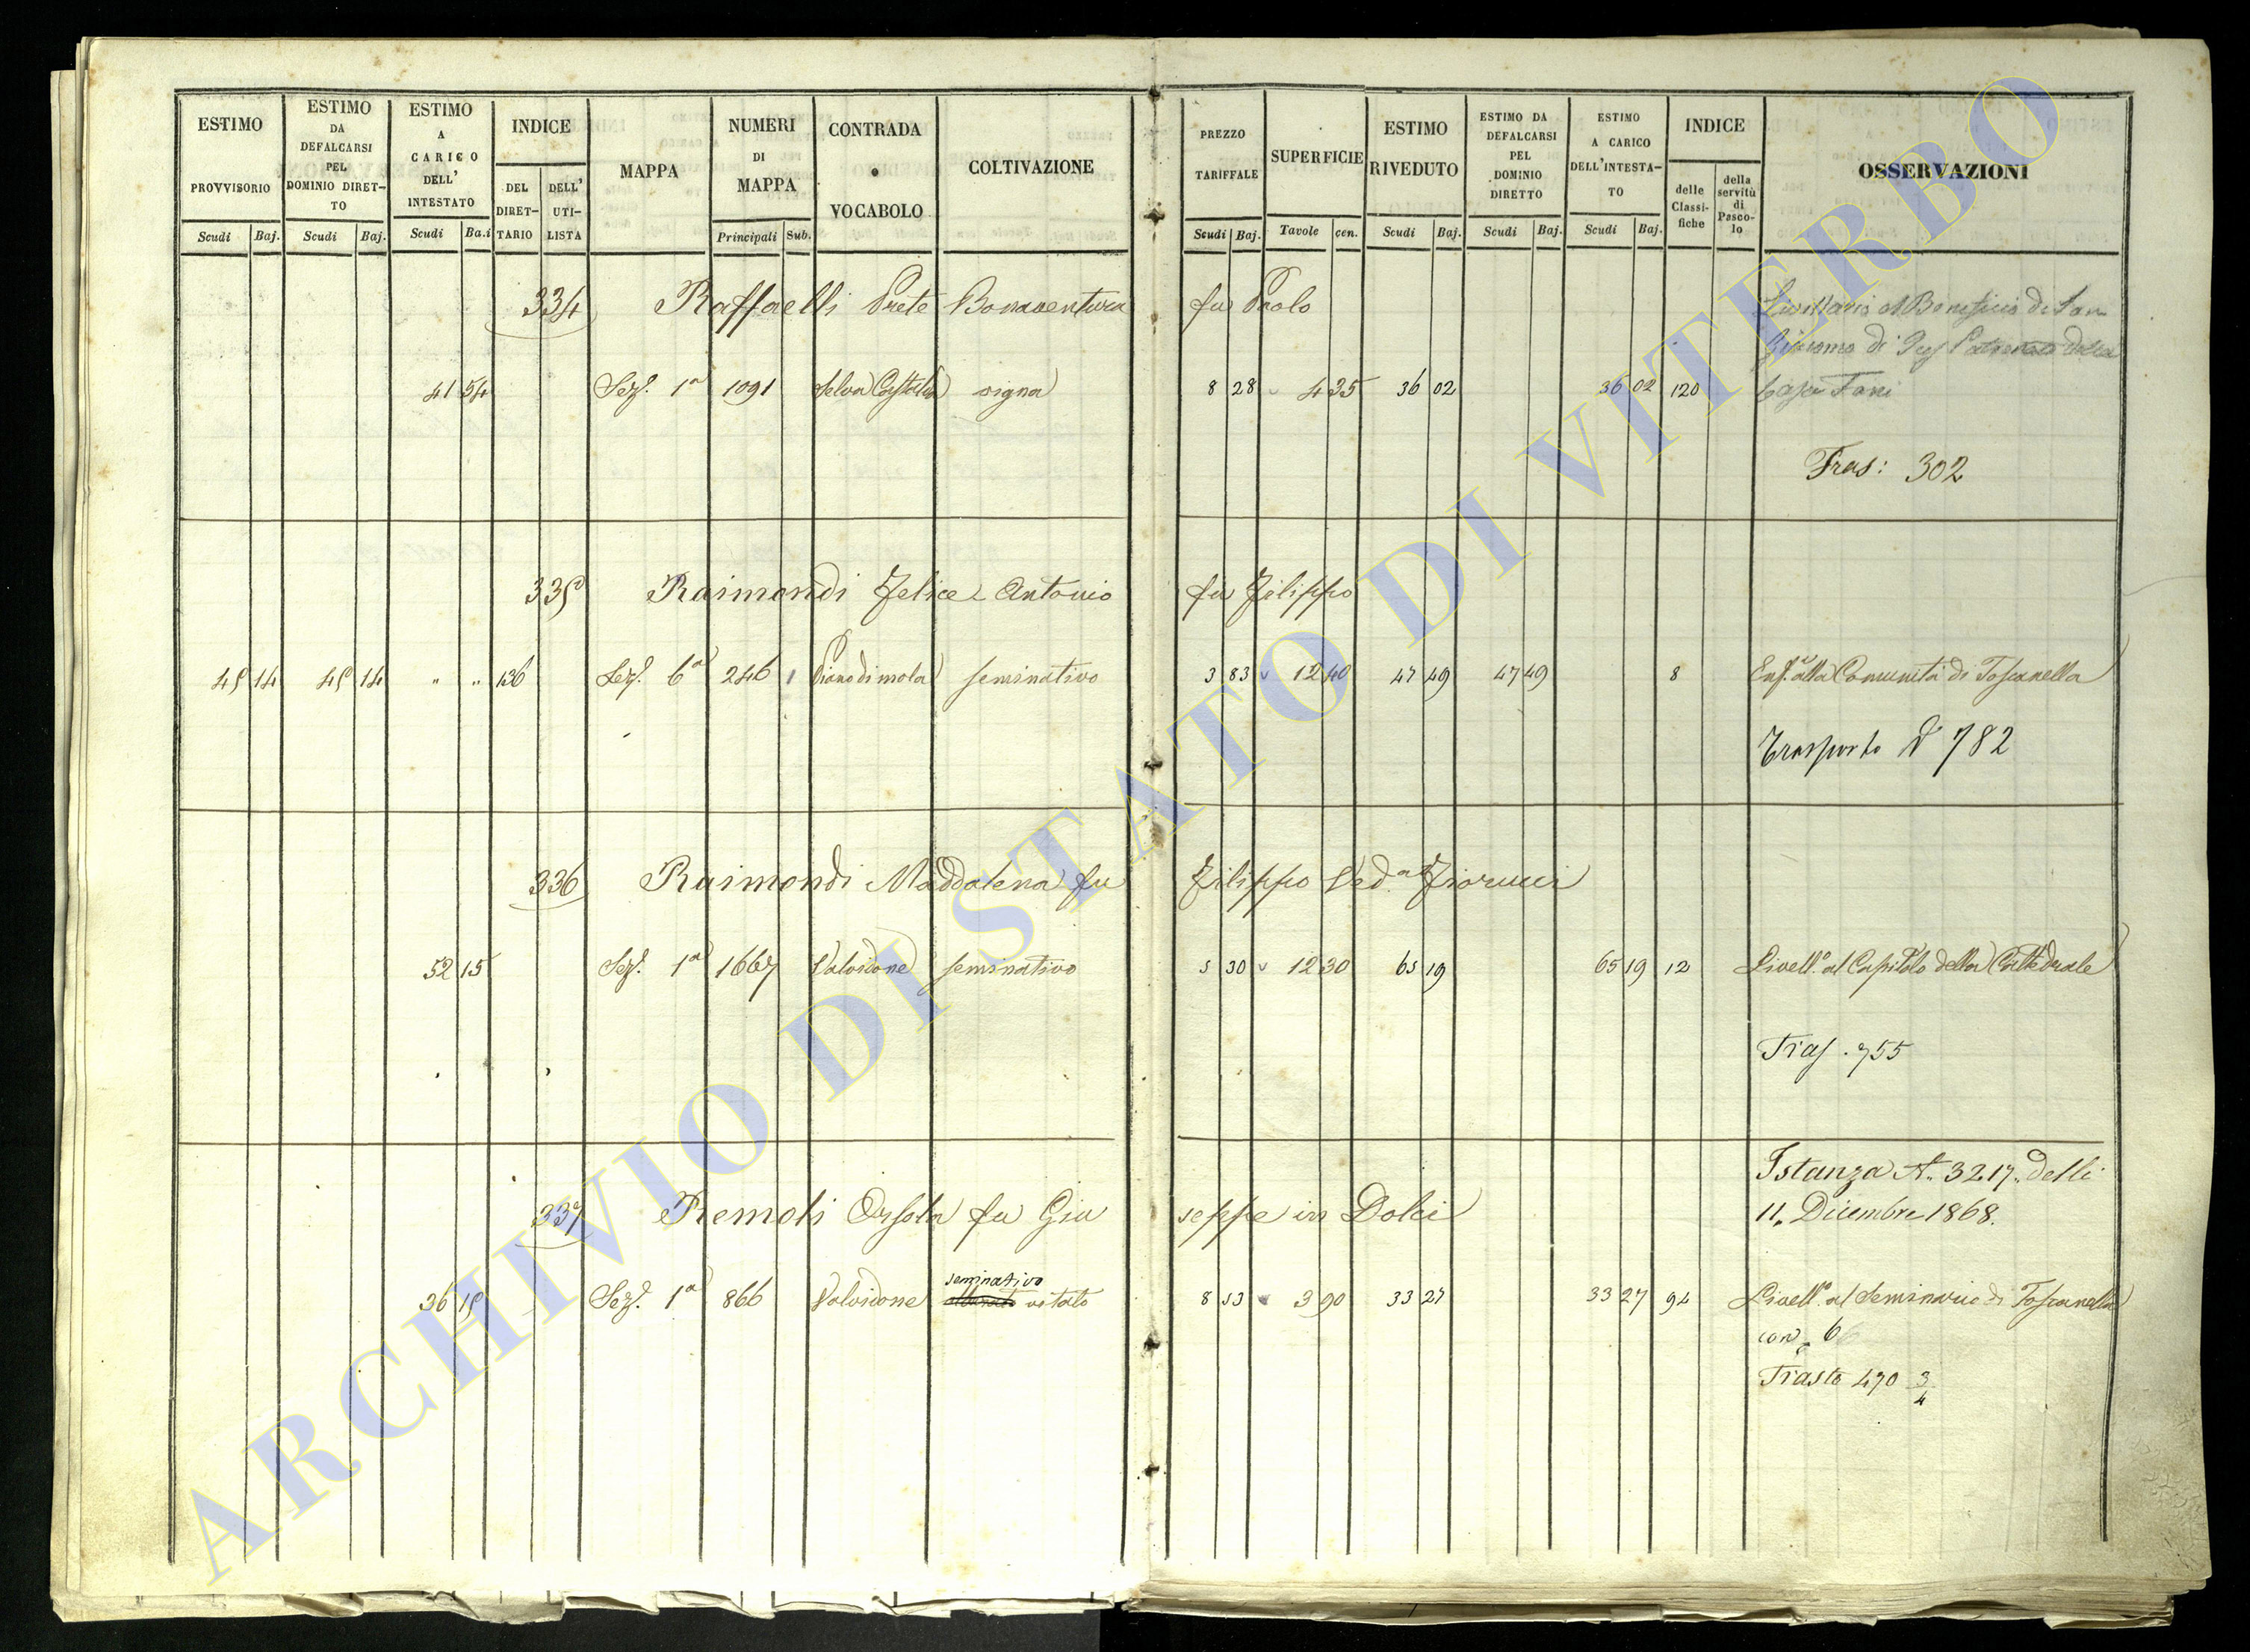 ESTIMO PROVVISORIO Scudi Baj.
ESTIMO DA DEFALCARSI PEL DOMINIO DIRETTO Scudi Baj.
ESTIMO A CARICO DELL' INTESTATO Scudi Ba.i
INDICE DEL DIRETTARIO DELL' UTILISTA
MAPPA
NUMERI DI MAPPA Principali Sub.
CONTRADA o VOCABOLO
COLTIVAZIONE
PREZZO TARIFFALE Scudi Baj.
SUPERFICIE Tavole cen.
ESTIMO RIVEDUTO Scudi Baj.
ESTIMO DA DEFALCARSI PEL DOMINIO DIRETTO Scudi Baj.
ESTIMO A CARICO DELL'INTESTATO Scudi Baj.
INDICE delle Classifiche della servitù di Pascolo
OSSERVAZIONI
334 Raffaelli Prete Bonaventura fu Paolo
41 54 Sez.e 1a 1091 Selva vigna 8 28 4 35 36 02 36 02 120
al Beneficio di San
Casa Fani
Tras: 302
335 Raimondi Felice Antonio fu Filippo
45 14 45 14 " " 136 Sez.e 6a 246 1 Piano di mola seminativo 3 83 12 40 47 49 47 49 8 Enf.a alla Comunità di Toscanella
Trasporto N 782
336 Raimondi Maddalena fu Filippo Ved.a Fiorucci
52 15 Sez.e 1a 1667 Valvidone seminativo 5 30 12 30 65 19 65 19 12 Livell.o al Capitolo della Cattedrale
Tras. 755
337 Remoli Orsola fu Giuseppe in Dolci
Istanza N. 3217. delli
11. Dicembre 1868.
36 15 Sez.e 1a 866 Valvidone seminativo vitato 8 53 3 90 33 27 33 27 94 Livell.o al Seminario di Toscanella
con 6
Trasto 470 3/4
ARCHIVIO DI STATO DI VITERBO